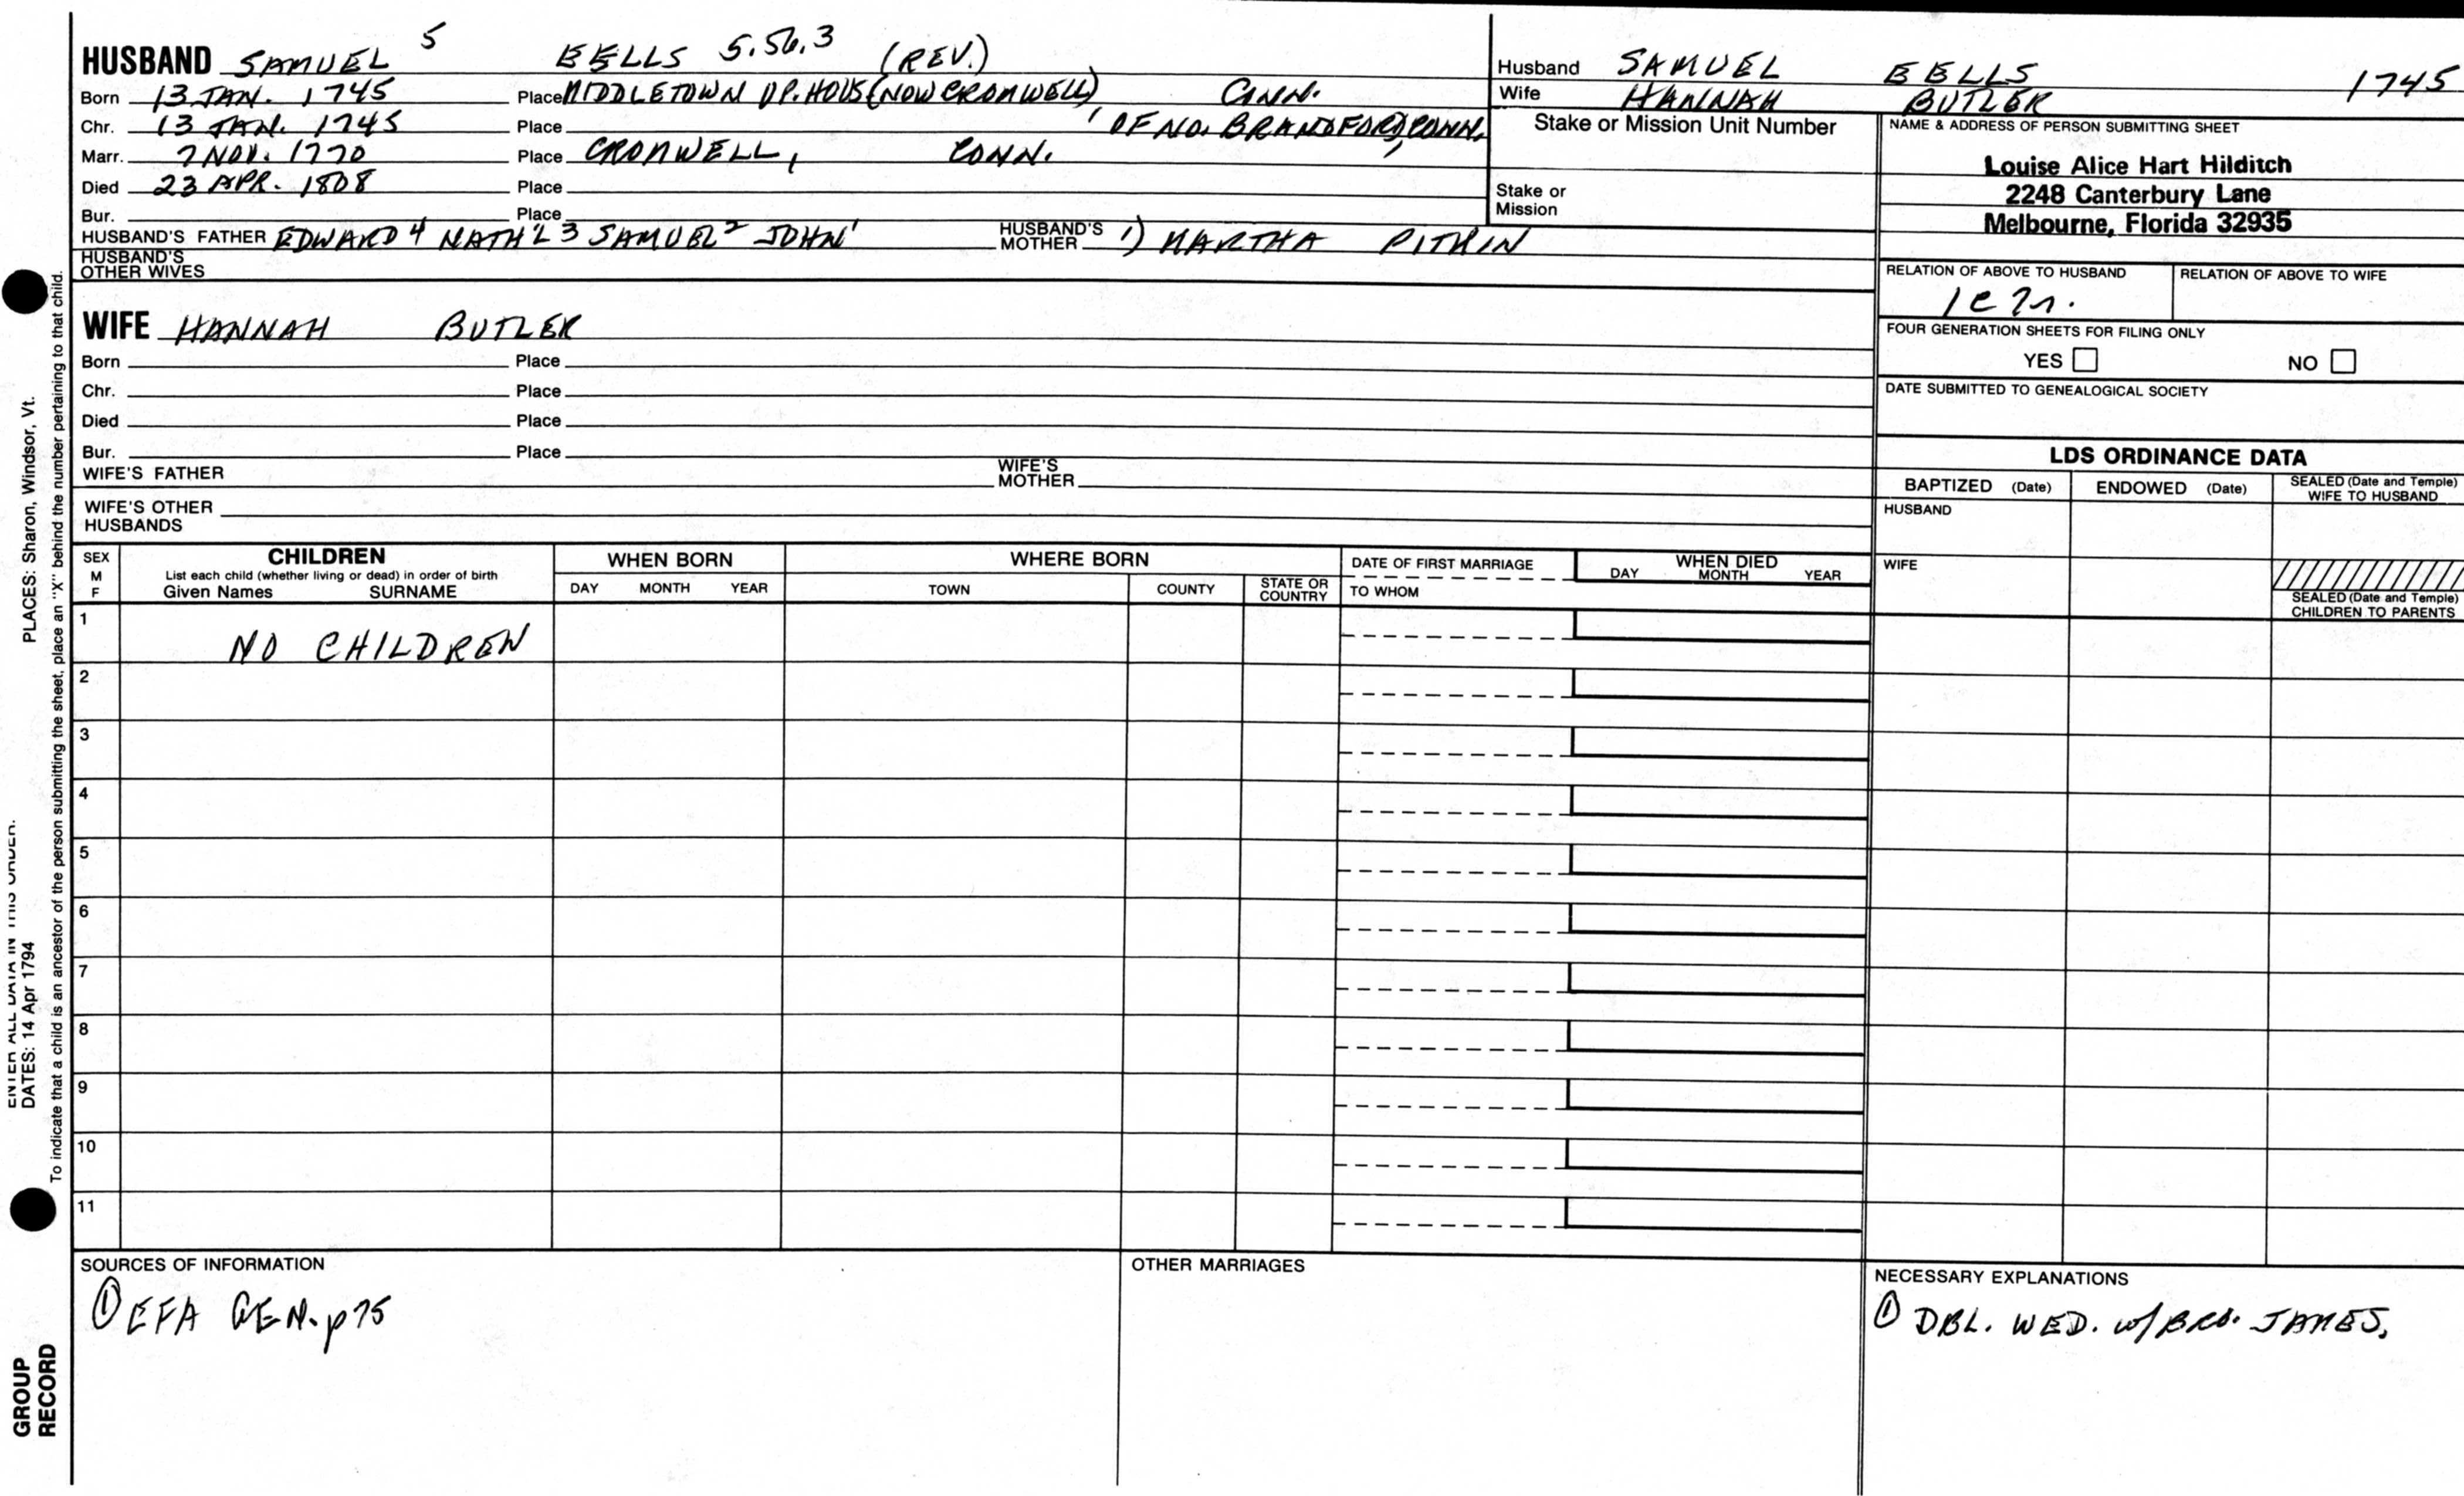 HUSBAND SAMUEL 5 EELLS 5.56.3 (REV.)
Born 13 JAN. 1745 Place MIDDLETOWN UP. HOUS (NOW CROMWELL) CONN.
Chr. 13 JAN. 1745 Place OF NO. BRANDFORD, CONN.
Marr. 7 NOV. 1770 Place CROMWELL, CONN.
Died 23 APR. 1808 Place
Bur. Place
HUSBAND'S FATHER EDWARD 4 NATH'L 3 SAMUEL 2 JOHN 1 HUSBAND'S MOTHER 1) MARTHA PITKIN
HUSBAND'S OTHER WIVES
Husband SAMUEL EELLS 1745
Wife HANNAH BUTLER
Stake or Mission Unit Number
Stake or Mission
NAME & ADDRESS OF PERSON SUBMITTING SHEET
Louise Alice Hart Hilditch
2248 Canterbury Lane
Melbourne, Florida 32935
RELATION OF ABOVE TO HUSBAND RELATION OF ABOVE TO WIFE
FOUR GENERATION SHEETS FOR FILING ONLY
YES NO
DATE SUBMITTED TO GENEALOGICAL SOCIETY
WIFE HANNAH BUTLER
Born Place
Chr. Place
Died Place
Bur. Place
WIFE'S FATHER WIFE'S MOTHER
WIFE'S OTHER HUSBANDS
LDS ORDINANCE DATA
BAPTIZED (Date) ENDOWED (Date) SEALED (Date and Temple) WIFE TO HUSBAND
HUSBAND
WIFE
SEALED (Date and Temple) CHILDREN TO PARENTS
SEX M F
CHILDREN
List each child (whether living or dead) in order of birth
Given Names SURNAME
WHEN BORN
DAY MONTH YEAR
WHERE BORN
TOWN COUNTY STATE OR COUNTRY
DATE OF FIRST MARRIAGE
TO WHOM
WHEN DIED
DAY MONTH YEAR
1 NO CHILDREN
2
3
4
5
6
7
8
9
10
11
SOURCES OF INFORMATION
① EFA GEN. p75
OTHER MARRIAGES
NECESSARY EXPLANATIONS
① DBL. WED. w/ BRO. JAMES.
ENTER ALL DATA IN THIS ORDER.
DATES: 14 Apr 1794 PLACES: Sharon, Windsor, Vt.
To indicate that a child is an ancestor of the person submitting the sheet, place an "X" behind the number pertaining to that child.
GROUP
RECORD